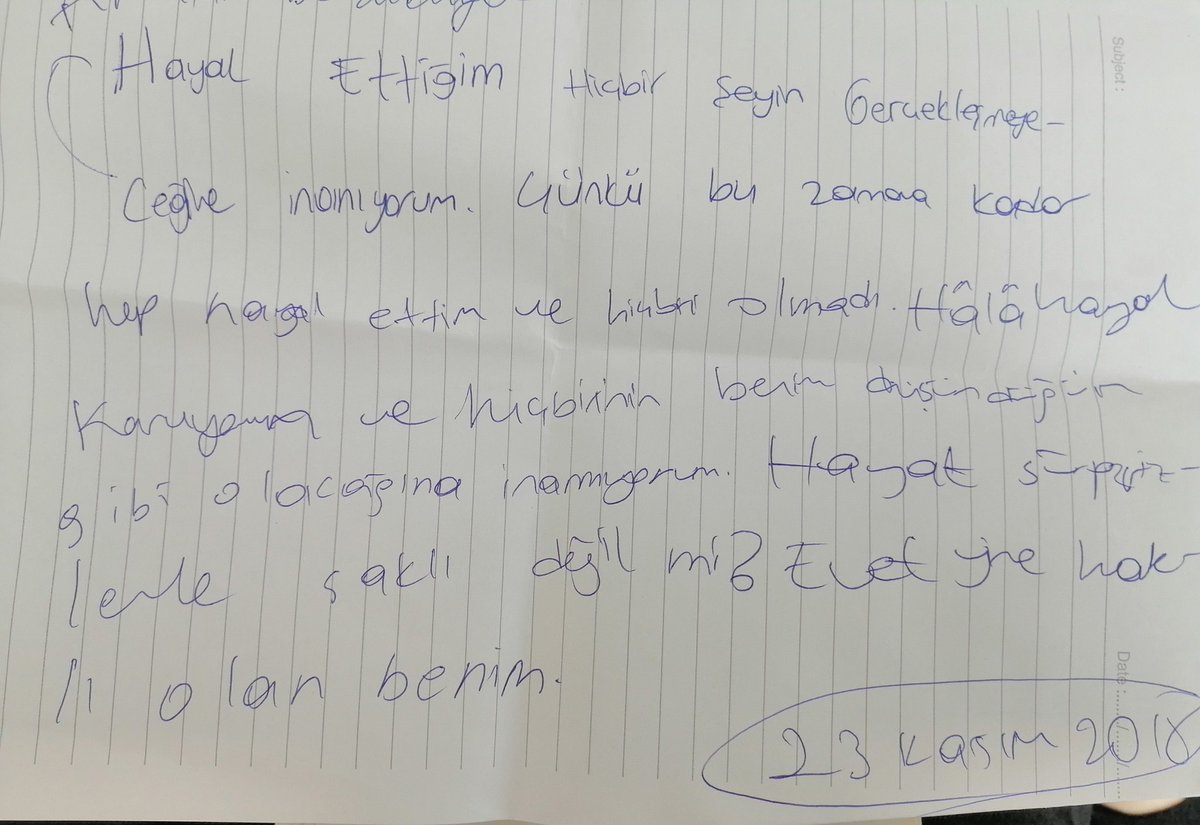 Hayal Ettiğim Hiçbir Şeyin Gerçekleşmeye-
Ceğine inanıyorum. Çünkü bu zamana kadar
hep hayal ettim ve hiçbiri olmadı. Hâlâ hayal
Kuruyorum ve hiçbirinin benim düşündüğüm
gibi olacağına inanmıyorum. Hayat sürpriz-
lerle saklı değil mi? Evet yine hak-
lı olan benim.
23 Kasım 2018
Subject :
Date :